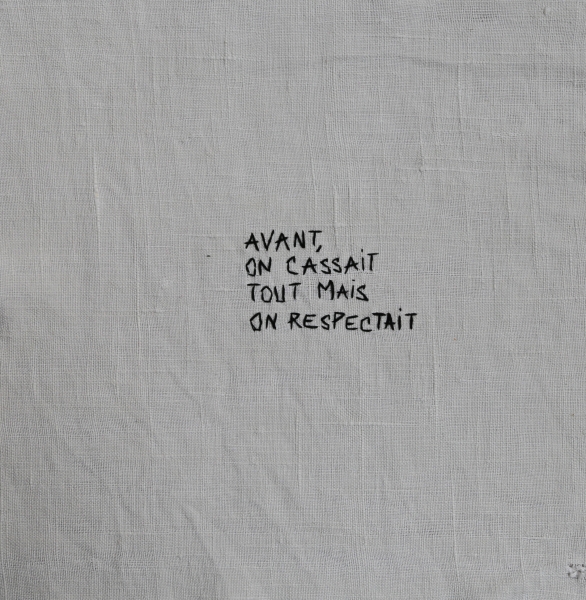 AVANT,
ON CASSAiT
TOUT MAiS
ON RESPECTAiT